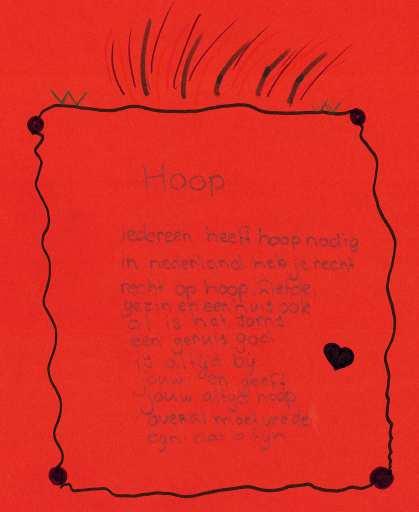 Hoop
iedereen heeft hoop nodig
in nederland heb je recht
recht op hoop liefde
gezin en een huis ook
al is het
een geruis god
is altijd by
jouw en geeft
jouw altijd hoop
overal moet vrede
zijn